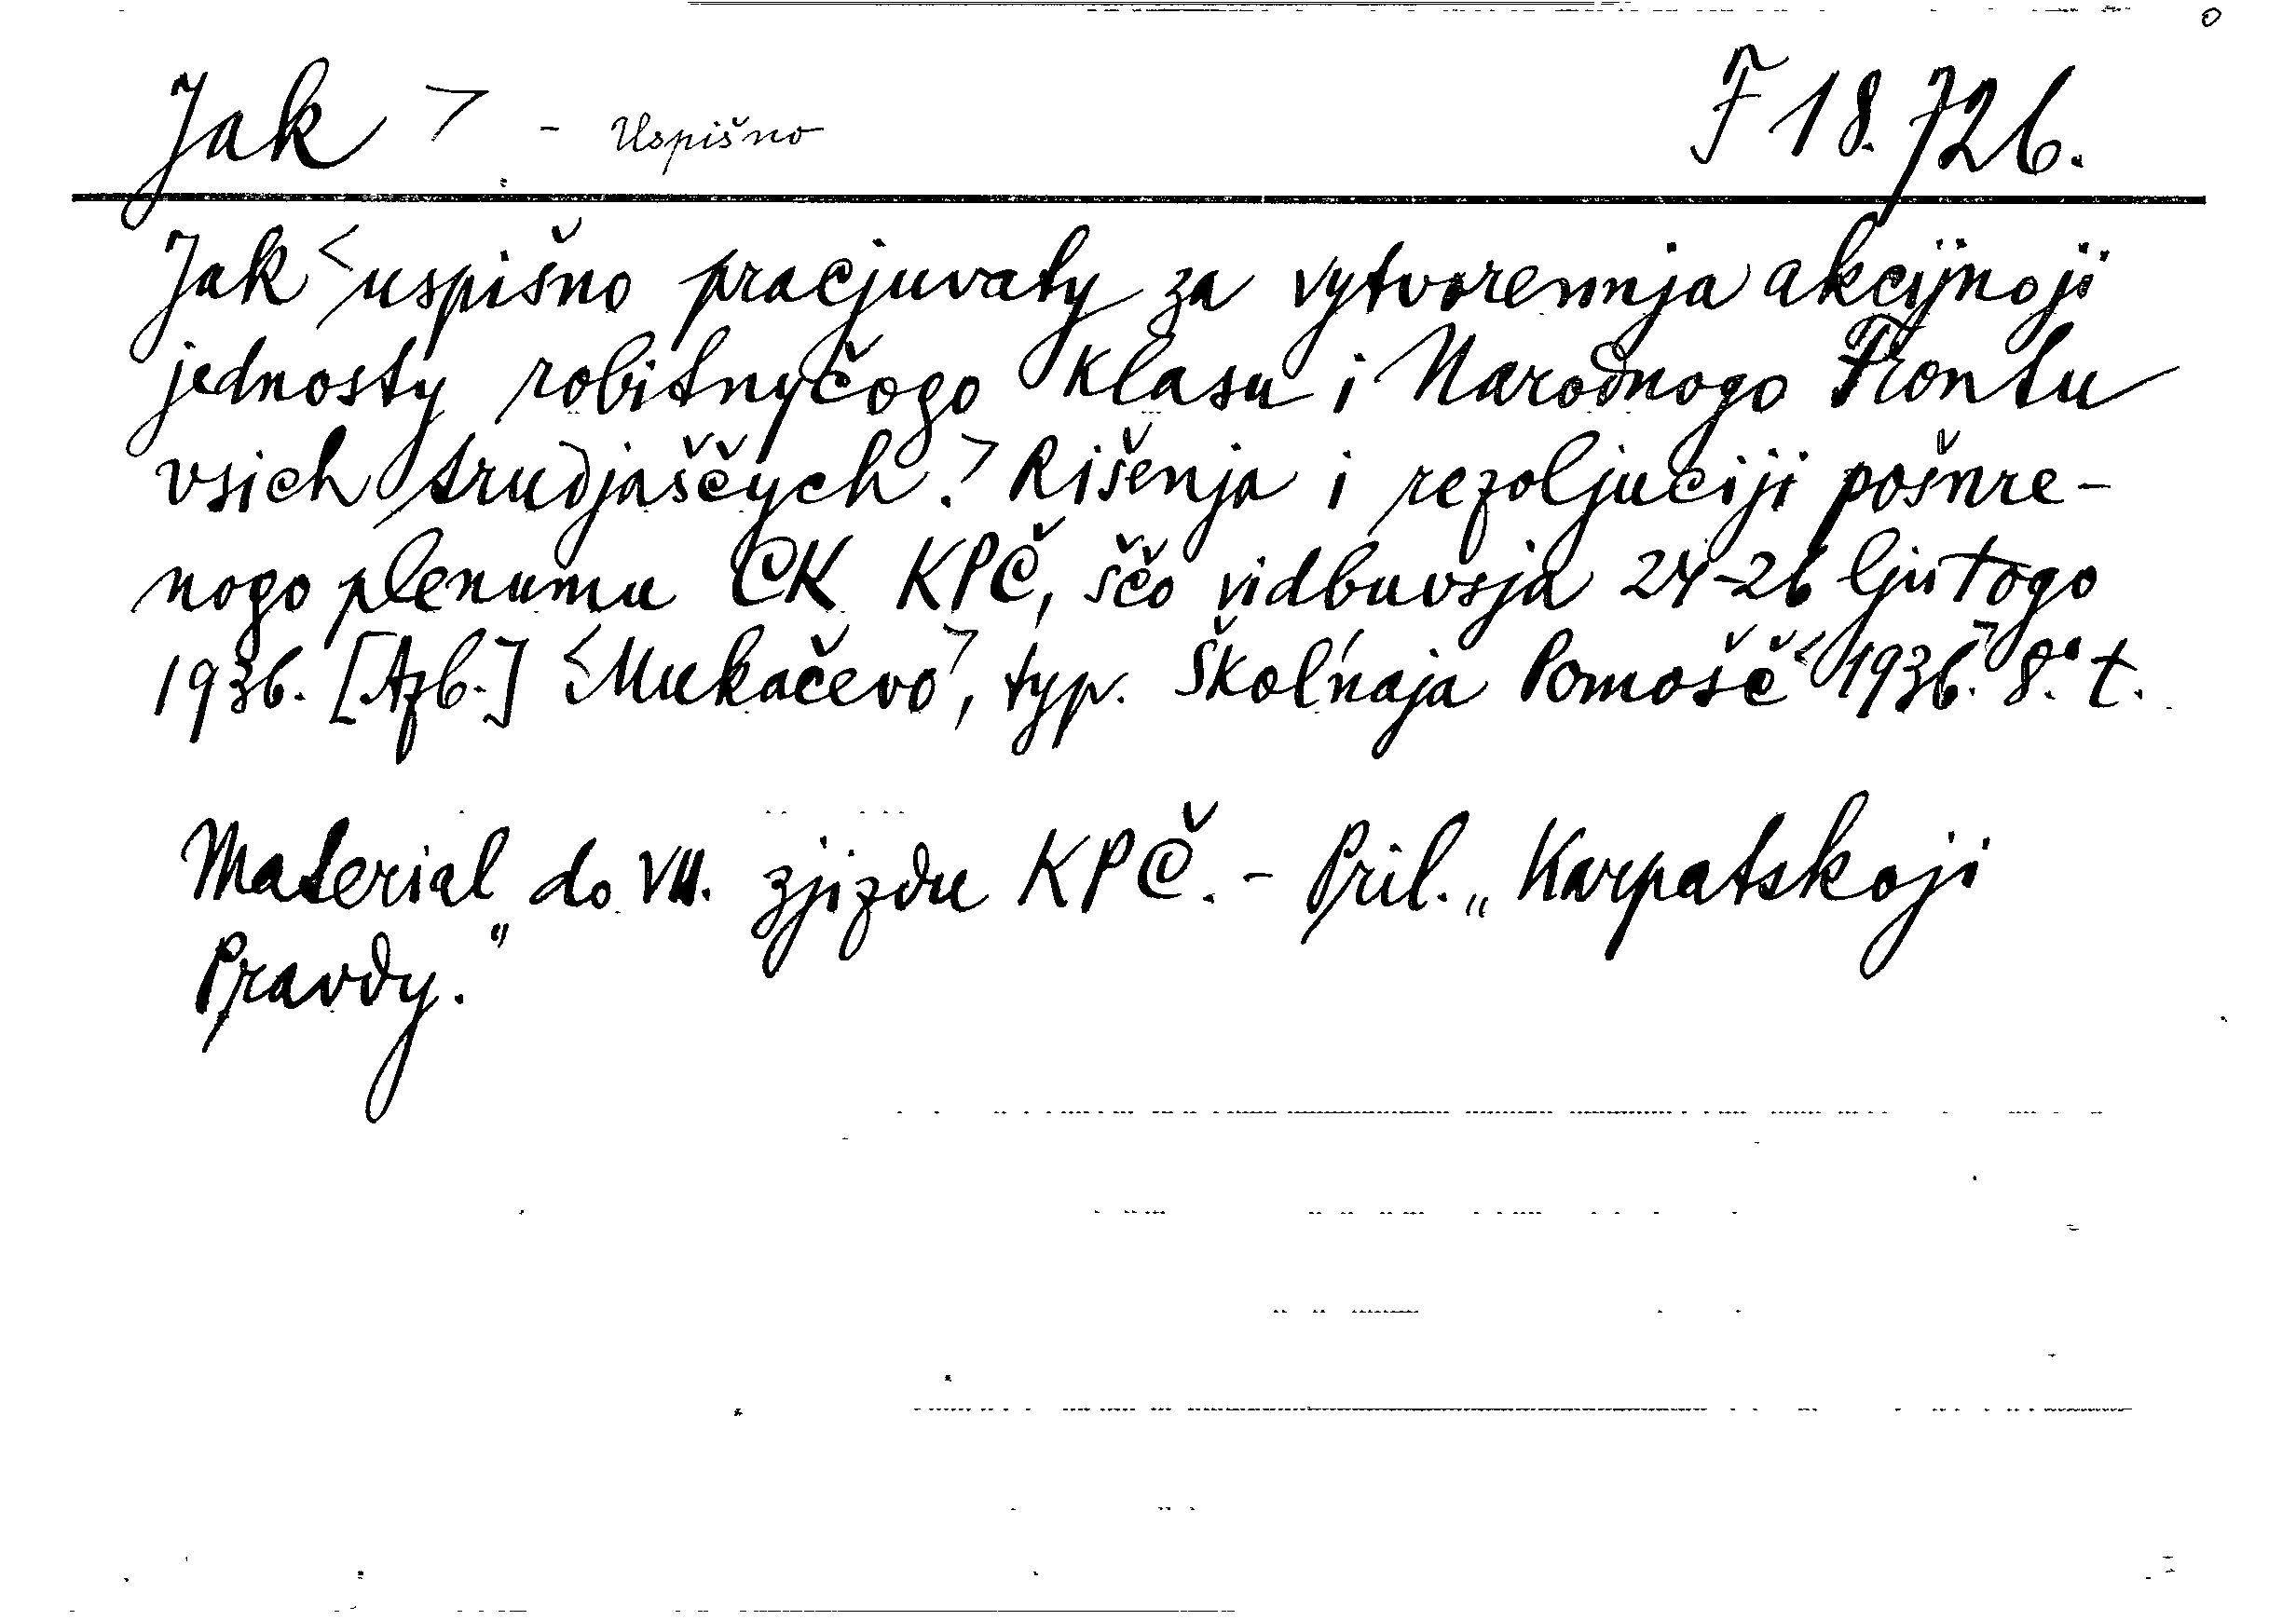 Jak > - Uspišno F 18.726.
Jak < uspišno pracjuvaty za vytvorennja akcijnoji
jednosty robitnyčogo klasu i Narodnogo Frontu
vsich trudjaščych.> Rišenja i rezoljuciji pošnre-
nogo plenumu CK KPČ, ščo vidbuvsja 24-26 ljutogo
1936. [Azb.] <Mukačevo>, typ. Škol'naja Pomošč <1936.> 8.° t.
Material do VII. zjizdu KPČ. - Pril. „Karpatskoji
Pravdy."